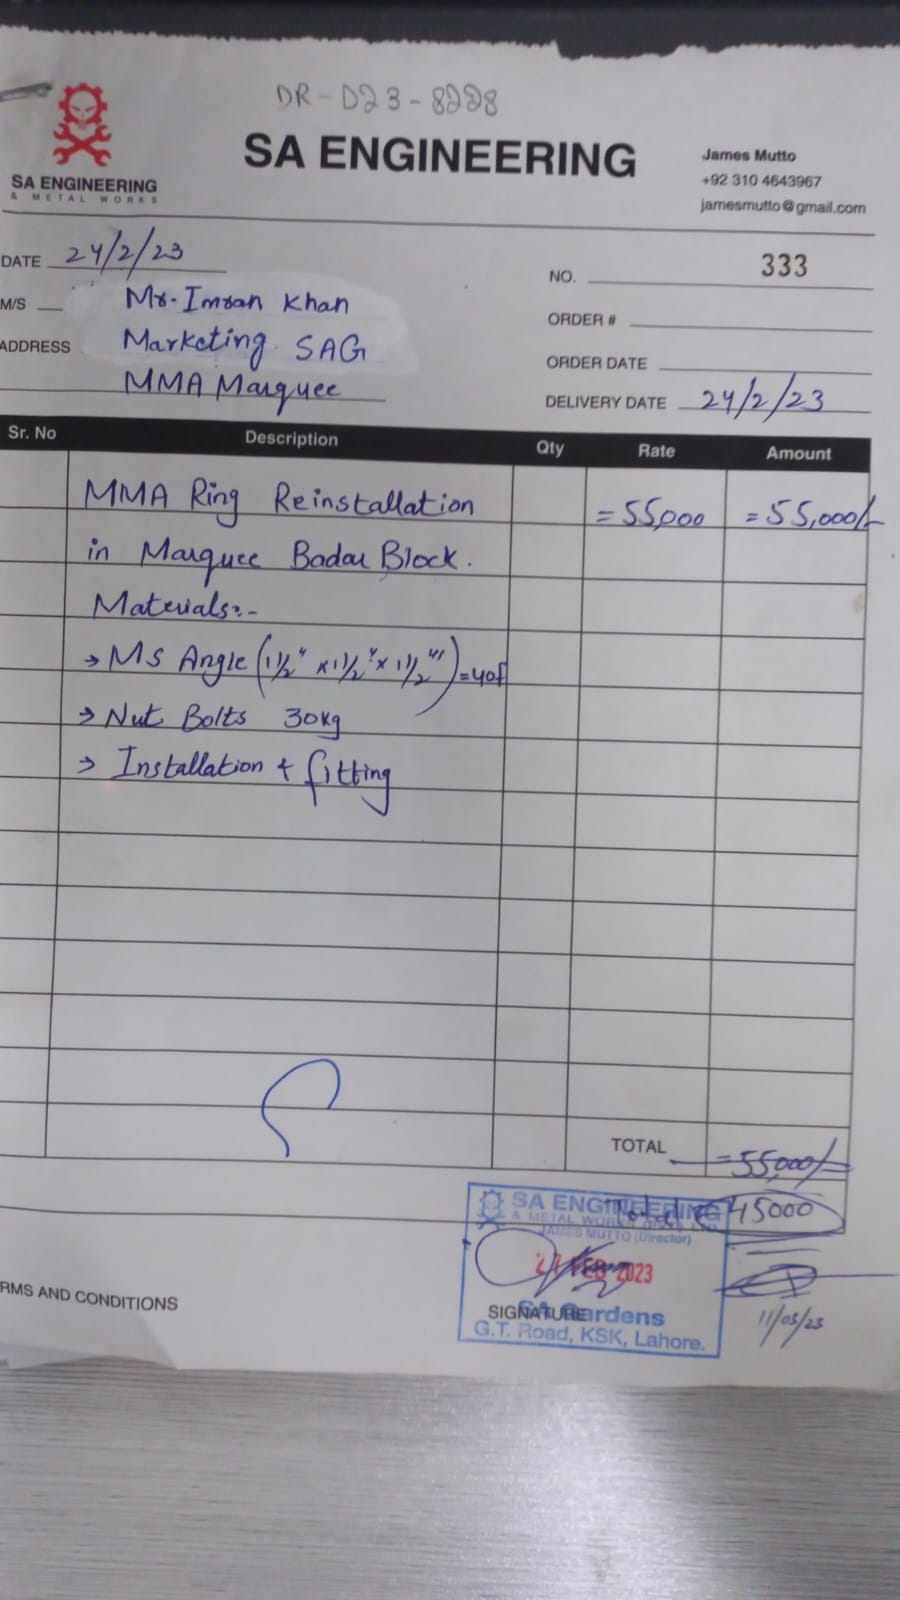 DR-D23-8228
SA ENGINEERING
& METAL WORKS
SA ENGINEERING
James Mutto
+92 310 4643967
jamesmutto@gmail.com
DATE 24/2/23
NO. 333
M/S Mr. Imran Khan
ORDER #
ADDRESS Marketing SAG
ORDER DATE
MMA Marquee
DELIVERY DATE 24/2/23
Sr. No Description Qty Rate Amount
MMA Ring Reinstallation =55,000 =55,000/-
in Marquee Badar Block.
Materials:-
→ MS Angle (1½" x 1½" x 1½") =40f
→ Nut Bolts 30kg
→ Installation + fitting
TOTAL =55,000/-
45000
SA ENGINEERING
& METAL WORKS
JAMES MUTTO (Director)
FEB 2023
SIGNATURE
SA Gardens
G.T. Road, KSK, Lahore.
11/03/23
RMS AND CONDITIONS